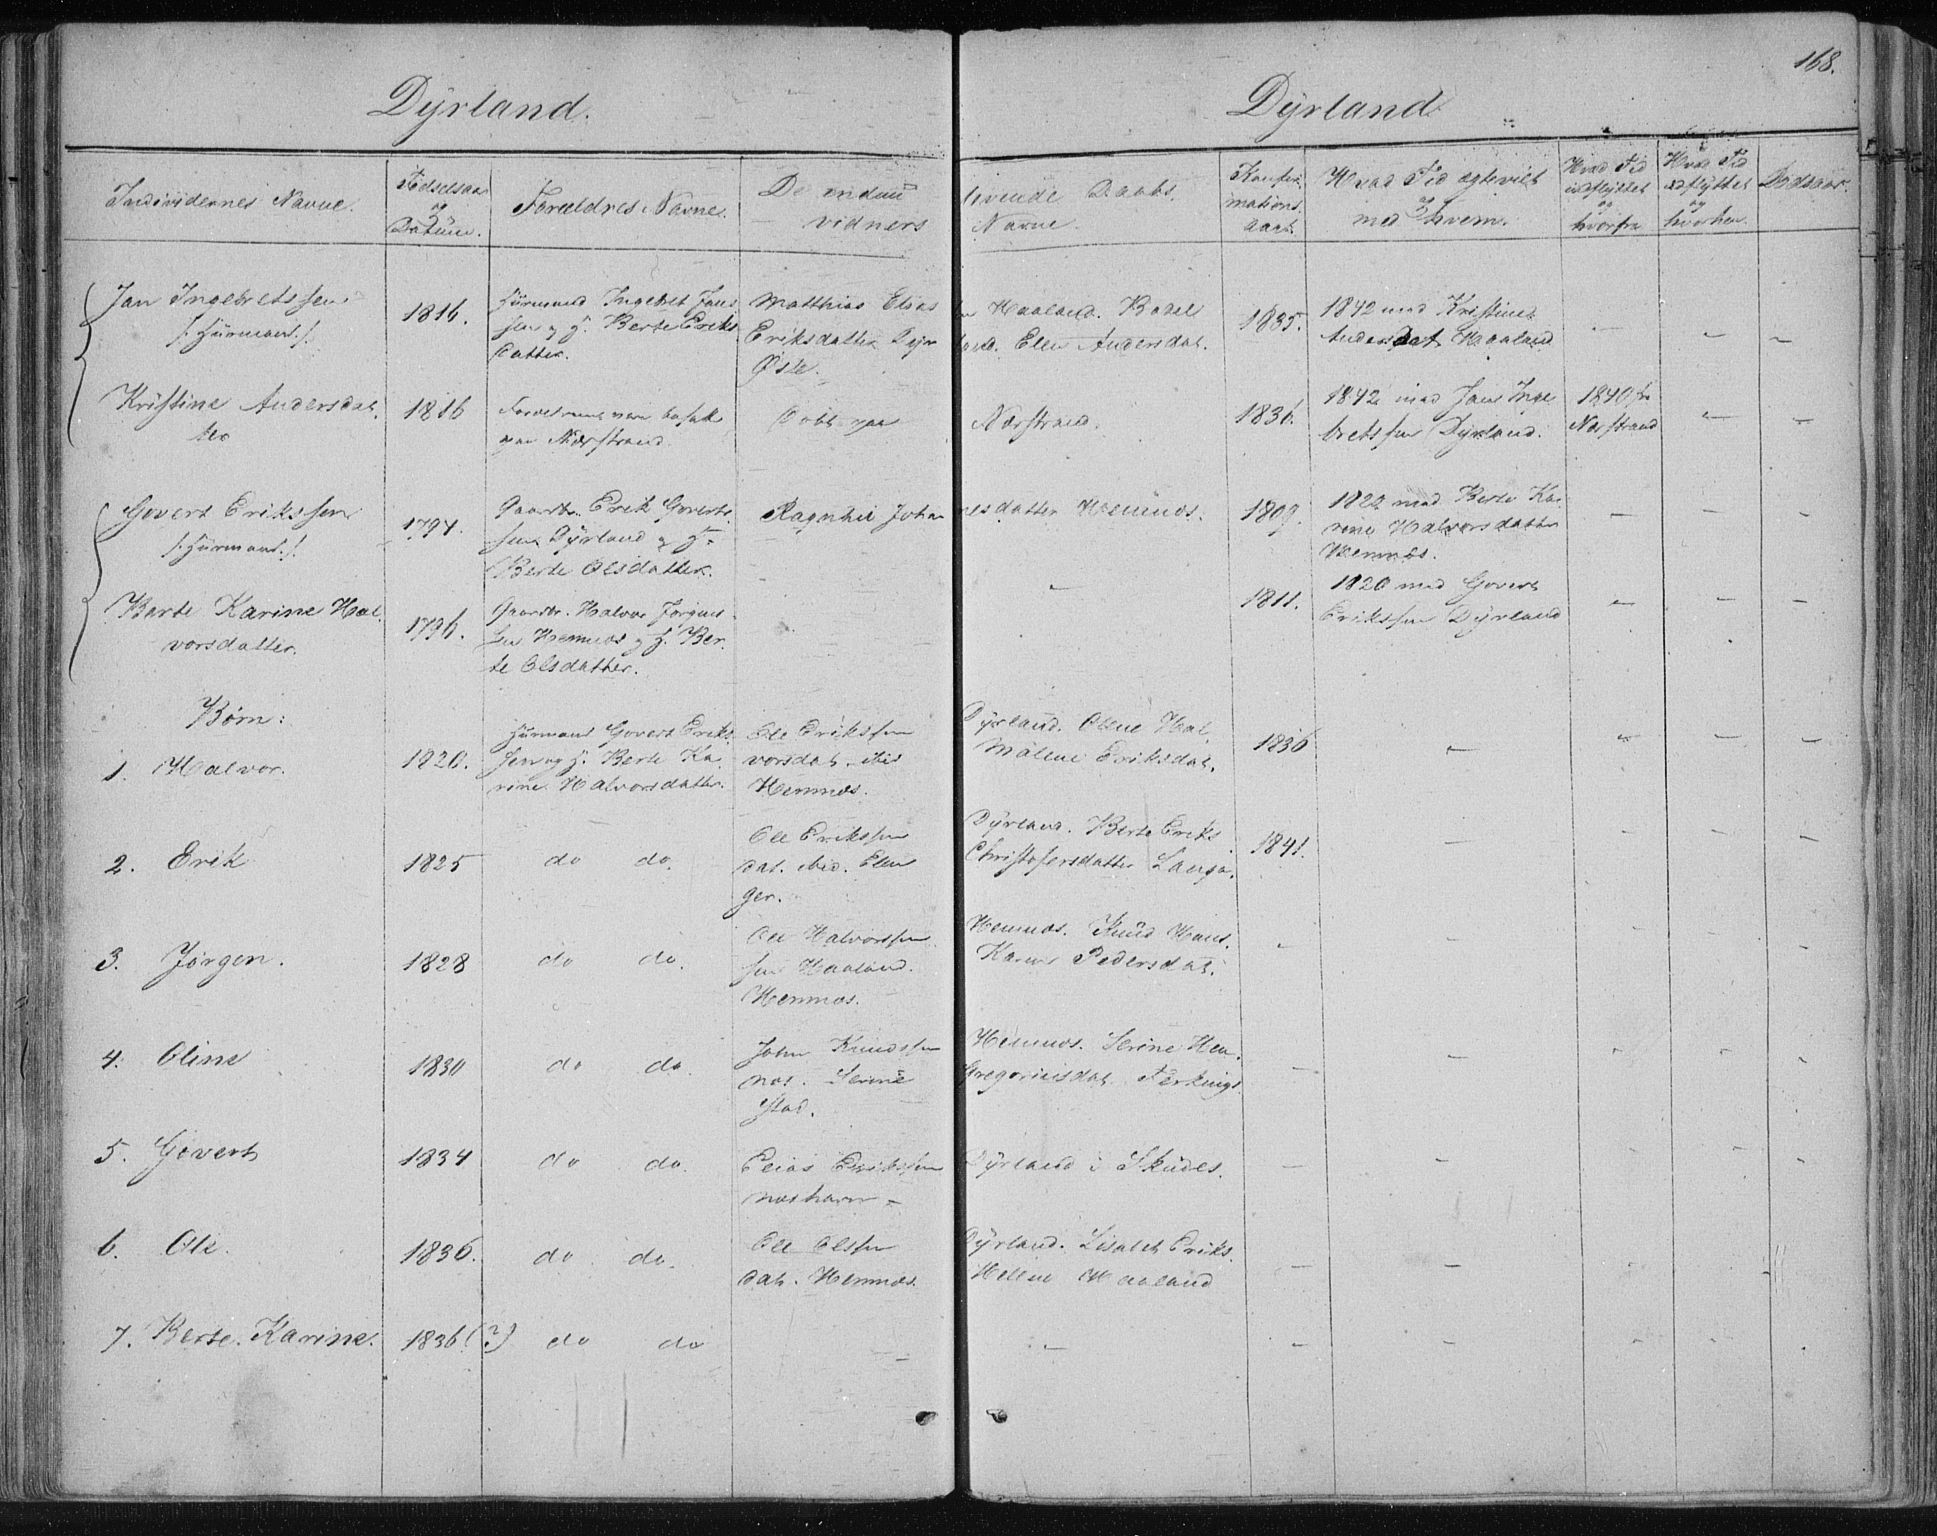 168.
Dÿrland.
Dÿrland.
Individernes Navne.
Fødselsaar og Datum.
Forældres Navne.
De endnu levende Daabsvidners Navne.
Konfirmations Aar.
Hvad Tid ægteviet og med hvem.
Hvad Tid indflyttet og hvorfra
Hvad Tid udflyttet og hvorhen
Dødsaar.
Jan Ingebretssen
/: Huusmand :/
1816.
Huusmand Ingebret Jans
sen og H. Berte Eriks
datter.
Matthias Elias
Eriksdatter Dyr
Øste.
Haaland.
land. Elen Andersdat.
1835.
1842 med Kristine
Andersdat Haaland
Kristine Andersdat.
ter
1816
Forældrene vare bosatte
paa Nærstrand.
Døbt paa
Nærstrand.
1836.
1842 med Jans Inge
bretssen Dÿrland.
1840 fra
Nærstrand
Govert Erikssen
/: Huusmand :/
1794.
Gaardbr. Erik Goverts
sen Dÿrland og H.
Berte Olsdatter.
Ragnhil Johan
nesdatter Hemnæs.
1809.
1822 med Berte Ka
rine Halvorsdatter
Hemnæs.
Berte Karine Hal
vorsdatter.
1796.
Gaardbr. Halvor Jørgens
sen Hemnæs og H. Ber
te Olsdatter.
1811.
1820 med Govert
Erikssen Dÿrland
Børn:
1. Halvor.
1820.
Huusmand Govert Eriks
sen og H. Berte Ka
rine Halvorsdatter.
Ole Erikssen
vorsdat. ibid
Hemnæs.
Dÿrland. Oline Hal
Malene Eriksdat.
1836
2. Erik
1825
do do.
Ole Erikssen
dat. ibid. Elen
ger.
Dÿrland. Berte Eriks
Christofersdatter Langa
1841.
3. Jörgen.
1828
do do.
Ole Halvorssen
sen Haaland.
Hemnæs.
Hemnæs. Knud Hans
Karen Pedersdat.
4. Oline
1830
do do.
John Knudssen
næs. Serine
stad.
Hemnæs. Serine Hem
Gregoriusdat. Ferkings
5. Govert
1834
do do.
Elias Erikssen
næshavn
Dÿrland i Skudes
6. Ole.
1836.
do do.
Ole Olssen
dat. Hemnæs.
Dÿrland. Lisabet Eriks
Helene Haaland
7. Berte Karine.
1836 (?)
do do